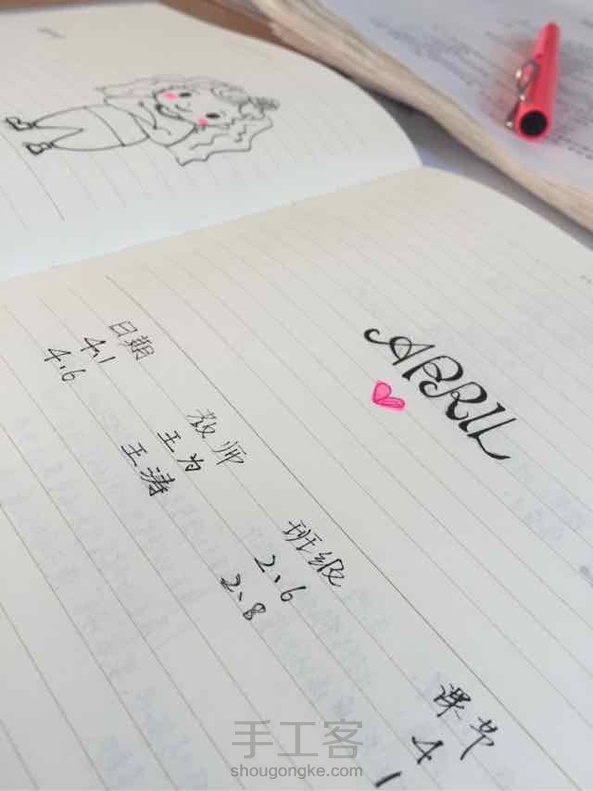 APRIL
日期 教师 班级 课节
4.1 王为 2、6 4
4.6 王涛 2、8 1
手工客
shougongke.com